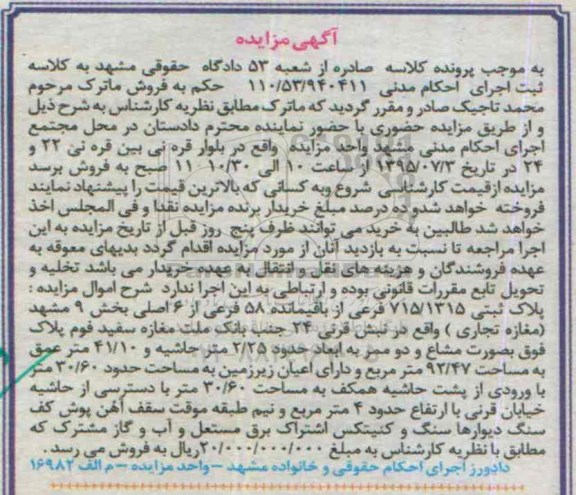 آگهی مزایده
به موجب پرونده کلاسه صادره از شعبه ۵۳ دادگاه حقوقی مشهد به کلاسه
ثبت اجرای احکام مدنی ۱۱۰/۵۳/۹۴۰۴۱۱ حکم به فروش ماترک مرحوم
محمد تاجیک صادر و مقرر گردید که ماترک مطابق نظریه کارشناس به شرح ذیل
و از طریق مزایده حضوری با حضور نماینده محترم دادستان در محل مجتمع
اجرای احکام مدنی مشهد واحد مزایده واقع در بلوار قره نی بین قره نی ۲۲ و
۲۴ در تاریخ ۱۳۹۵/۰۷/۳ از ساعت ۱۰ الی ۱۰/۳۰ ۱۱ صبح به فروش برسد
مزایده ازقیمت کارشناسی شروع وبه کسانی که بالاترین قیمت را پیشنهاد نمایند
فروخته خواهد شد،ده درصد مبلغ خریدار برنده مزایده نقدا و فی المجلس اخذ
خواهد شد طالبین به خرید می توانند ظرف پنج روز قبل از تاریخ مزایده به این
اجرا مراجعه تا نسبت به بازدید آنان از مورد مزایده اقدام گردد بدیهای معوقه به
عهده فروشندگان و هزینه های نقل و انتقال به عهده خریدار می باشد تخلیه و
تحویل تابع مقررات قانونی بوده و ارتباطی به این اجرا ندارد شرح اموال مزایده :
پلاک ثبتی ۷۱۵/۱۳۱۵ فرعی از باقیمانده ۵۸ فرعی از ۶ اصلی بخش ۹ مشهد
(مغازه تجاری ) واقع در نبش قرنی ۲۴ جنب بانک ملت مغازه سفید فوم پلاک
فوق بصورت مشاع و دو ممر به ابعاد حدود ۲/۲۵ متر حاشیه و ۴۱/۱۰ متر عمق
به مساحت ۹۲/۴۷ متر مربع و دارای اعیان زیرزمین به مساحت حدود ۳۰/۶۰ متر
با ورودی از پشت حاشیه همکف به مساحت ۳۰/۶۰ متر با دسترسی از حاشیه
خیابان قرنی با ارتفاع حدود ۴ متر مربع و نیم طبقه موقت سقف آهن پوش کف
سنگ دیوارها سنگ و کنیتکس اشتراک برق مستعل و آب و گاز مشترک که
مطابق با نظریه کارشناس به مبلغ ۲۰/۰۰۰/۰۰۰/۰۰۰ریال به فروش می رسد .
دادورز اجرای احکام حقوقی و خانواده مشهد –واحد مزایده –م الف ۱۶۹۸۲